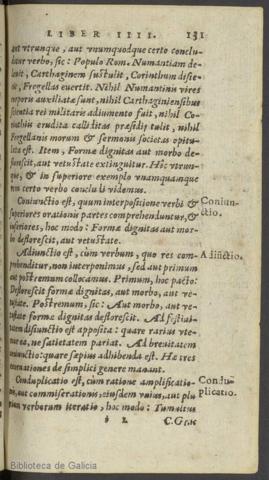 LIBER IIII. 131
aut vtrunque, aut vnumquodque certo conclu-
ditur verbo, sic: Populo Rom. Numantiam de-
leuit, Carthaginem sustulit, Corinthum disie-
cit, Fregellas euertit. Nihil Numantinis vires
corporis auxiliatæ sunt, nihil Carthaginiensibus
scientia rei militaris adiumento fuit, nihil Co-
rinthiis erudita calliditas præsidij tulit, nihil
Fregellanis morum & sermonis societas opitu-
lata est. Item, Formæ dignitas aut morbo de-
florescit, aut vetustate extinguitur. Hoc vtrun-
que, & in superiore exemplo vnamquamque
rem certo verbo concludi videmus.
Coniunctio est, quum interpositione verbi &
superiores orationis partes comprehenduntur, &
inferiores, hoc modo: Formæ dignitas aut mor-
bo deflorescit, aut vetustate.
Coniun-
ctio.
Adiunctio est, cùm verbum, quo res com-
prehenditur, non interponimus, sed aut primum
aut postremum collocamus. Primum, hoc pacto:
Deflorescit formæ dignitas, aut morbo, aut ve-
tustate. Postremum, sic: Aut morbo, aut ve-
tustate formæ dignitas deflorescit. Ad festiui-
tatem disiunctio est apposita: quare rarius vte-
mur ea, ne satietatem pariat. Ad breuitatem
coniunctio: quare sæpius adhibenda est. Hæ tres
exornationes de simplici genere manant.
Adiũctio.
Conduplicatio est, cùm ratione amplificatio-
nis, aut commiserationis, eiusdem vnius, aut plu-
rium verborum iteratio, hoc modo: Tumultus
Condu-
plicatio.
C. Grac
Biblioteca de Galicia